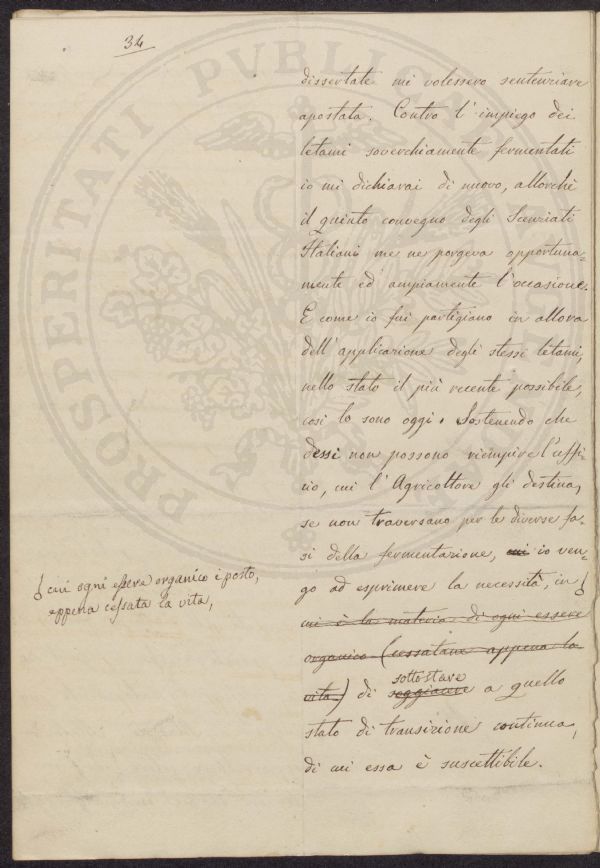 34
dissertate mi volessero sentenziare
apostata. Contro l'impiego dei
letami soverchiamente fermentati
io mi dichiarai di nuovo, allorchè
il quinto convegno degli Scenziati
Italiani me ne porgeva opportuna=
mente ed ampiamente l'occasione.
E come io fui partigiano in allora
dell'applicazione degli stessi letami,
nello stato il più recente possibile,
così lo sono oggi. Sostenendo che
dessi non possono riempire l'uffi=
cio, cui l'Agricoltore gli destina,
se non traversano per le diverse fa=
si della fermentazione, mi io ven=
go ad esprimere la necessità, in
cui ogni essere organico è posto,
appena cessata la vita,
cui è la materia di ogni essere
organico (cessatane appena la
vita) di soggiacere a quello
sottostare
stato di transizione continua,
di cui essa è suscettibile.
PROSPERITATI PVBLICAE AVGENDAE